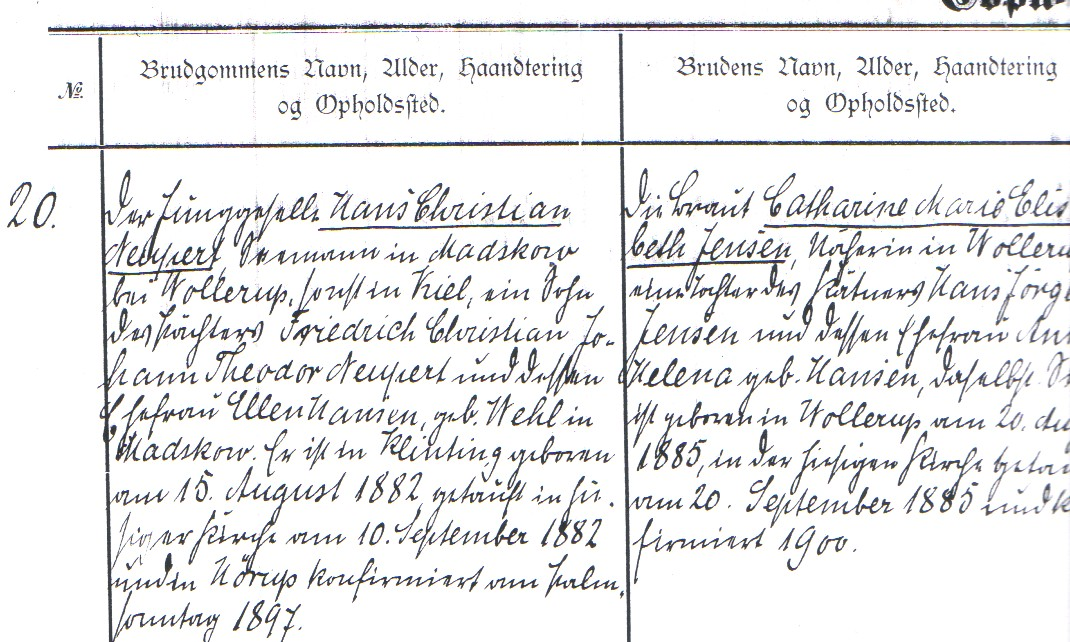 №.
Brudgommens Navn, Alder, Haandtering
og Opholdssted.
Brudens Navn, Alder, Haandtering
og Opholdssted.
20.
Der Junggeselle Hans Christian
Neupert, Seemann in Madskow
bei Wollerup, sonst in Kiel, ein Sohn
des Pächters Friedrich Christian Jo-
hann Theodor Neupert und dessen
Ehefrau Ellen Hansen, geb. Wehl in
Madskow. Er ist in Klinting geboren
am 15. August 1882, getauft in hie-
siger Kirche am 10. September 1882
und in Nörup konfirmiert am Palm-
sonntag 1897.
Die Braut Catharine Marie Elis
beth Jensen, Näherin in Welleru
eine Tochter des Kätners Hans Jörge
Jensen und dessen Ehefrau An
Helena geb. Hansen, daselbst. S
ist geboren in Wollerup am 20. Au
1885, in der hiesigen Kirche getau
am 20. September 1885 und k
firmiert 1900.